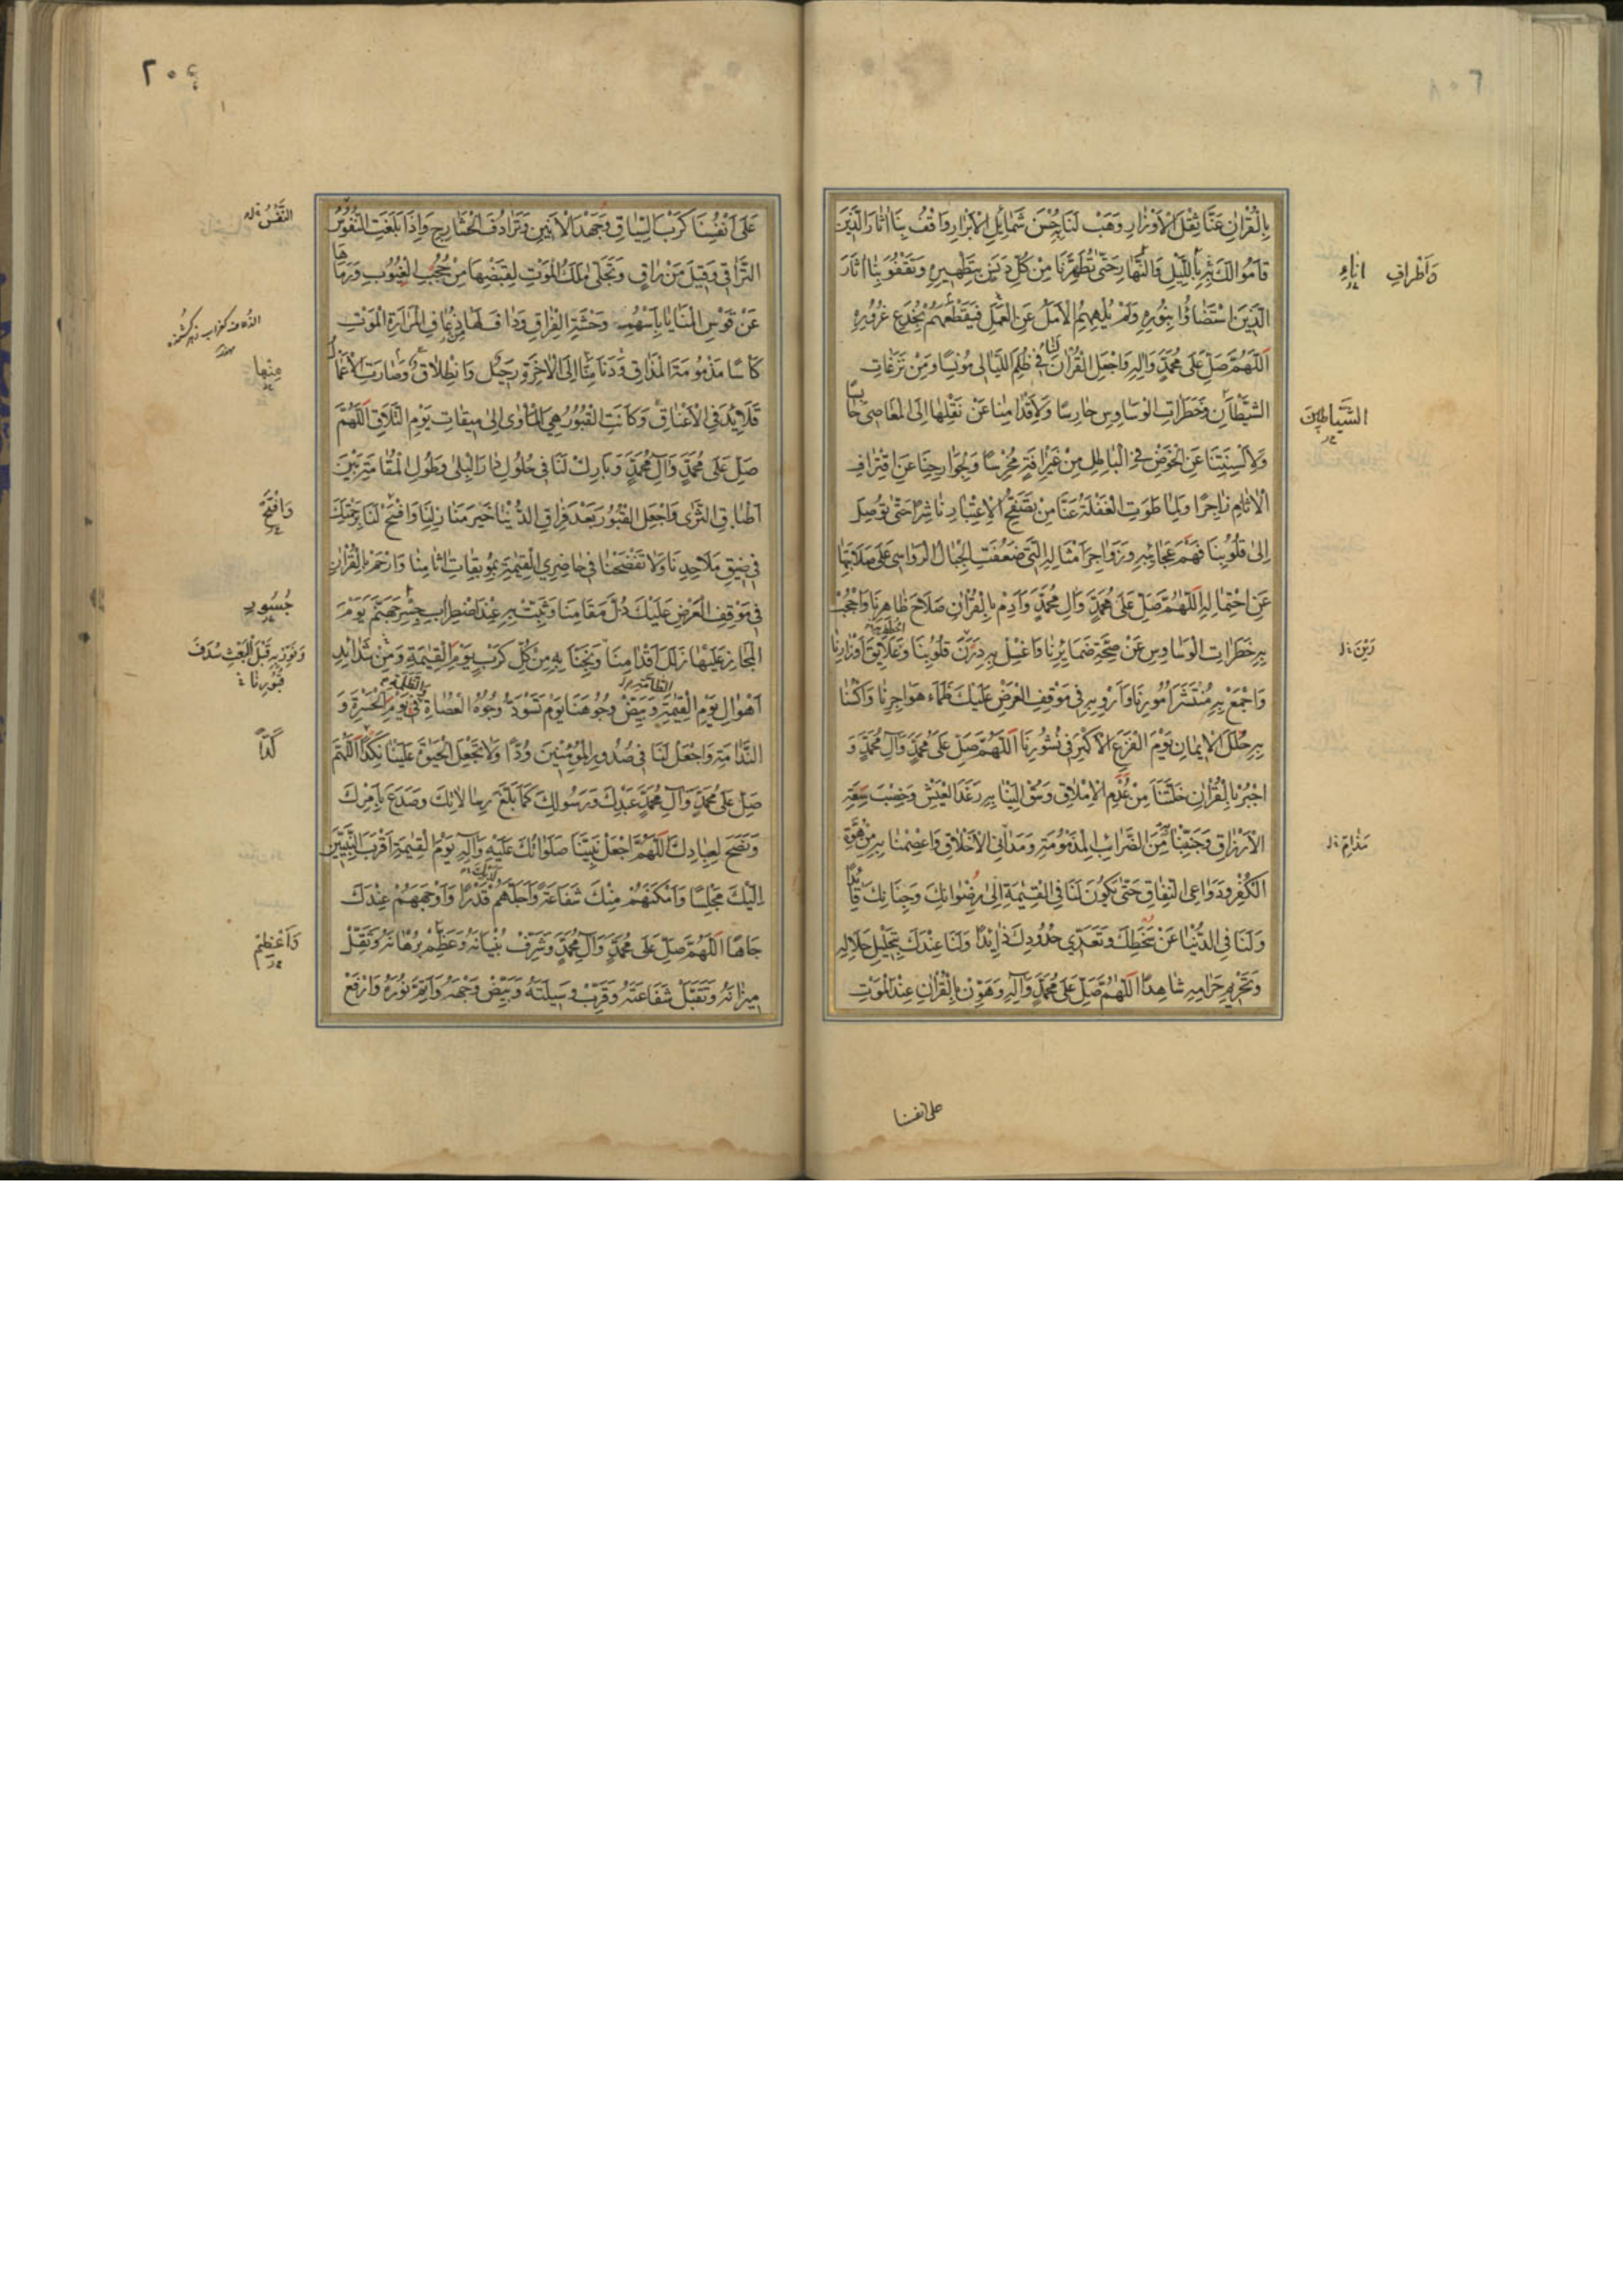 بِالْقُرْاٰنِ عَنَّا ثِقْلَ الْاَوْزٰارِ وَهَبْ لَنَا حُسْنَ شَمٰائِلِ الْاَبْرٰارِ وَاقْفُ بِنٰا اٰثٰارَ الَّذِينَ
قٰامُوا لَكَ بِهِ بِاللَّيْلِ وَالنَّهٰارِ حَتّٰى تُطَهِّرَنٰا مِنْ كُلِّ دَنَسٍ بِتَطْهِيرِهِ وَتَقْفُوَ بِنٰا اٰثٰارَ
وَاَطْرٰافِ اٰنٰاءِ
الَّذِينَ اسْتَضٰاؤُا بِنُورِهِ وَلَمْ يُلْهِهِمُ الْاَمَلُ عَنِ الْعَمَلِ فَيَقْطَعَهُمْ بِخُدَعِ غُرُورِهِ
اَللّٰهُمَّ صَلِّ عَلٰى مُحَمَّدٍ وَاٰلِهِ وَاجْعَلِ الْقُرْاٰنَ لَنٰا فِي ظُلَمِ اللَّيٰالِي مُونِسًا وَمِنْ نَزَغٰاتِ
الشَّيْطٰانِ وَخَطَرٰاتِ الْوَسٰاوِسِ حٰارِسًا وَلِاَقْدٰامِنٰا عَنْ نَقْلِهٰا اِلَى الْمَعٰاصِي حٰابِسًا
الشَّيٰاطِينِ
وَلِاَلْسِنَتِنٰا عَنِ الْخَوْضِ فِي الْبٰاطِلِ مِنْ غَيْرِ اٰفَةٍ مُخْرِسًا وَلِجَوٰارِحِنٰا عَنِ اقْتِرٰافِ
الْاٰثٰامِ زٰاجِرًا وَلِمٰا طَوَتِ الْغَفْلَةُ عَنَّا مِنْ تَصَفُّحِ الْاِعْتِبٰارِ نٰاشِرًا حَتّٰى تُوصِلَ
اِلٰى قُلُوبِنٰا فَهْمَ عَجٰائِبِهِ وَزَوٰاجِرَ اَمْثٰالِهِ الَّتِي ضَعُفَتِ الْجِبٰالُ الرَّوٰاسِي عَلٰى صَلٰابَتِهٰا
عَنِ احْتِمٰالِهِ اَللّٰهُمَّ صَلِّ عَلٰى مُحَمَّدٍ وَاٰلِ مُحَمَّدٍ وَاَدِمْ بِالْقُرْاٰنِ صَلٰاحَ ظٰاهِرِنٰا وَاحْجُبْ
بِهِ خَطَرٰاتِ الْوَسٰاوِسِ عَنْ صِحَّةِ ضَمٰائِرِنٰا وَاغْسِلْ بِهِ دَرَنَ قُلُوبِنٰا وَعَلٰايِقَ اَوْزٰارِنٰا
رَيْنَ
وَاجْمَعْ بِهِ مُنْتَشَرَ اُمُورِنٰا وَاَرْوِ بِهِ فِي مَوْقِفِ الْعَرْضِ عَلَيْكَ ظَمَاَ هَوٰاجِرِنٰا وَاكْسُنٰا
بِهِ حُلَلَ الْاِيمٰانِ يَوْمَ الْفَزَعِ الْاَكْبَرِ فِي نُشُورِنٰا اَللّٰهُمَّ صَلِّ عَلٰى مُحَمَّدٍ وَاٰلِ مُحَمَّدٍ وَ
اجْبُرْ بِالْقُرْاٰنِ خَلَّتَنٰا مِنْ عُدْمِ الْاِمْلٰاقِ وَسُقْ اِلَيْنٰا بِهِ رَغَدَ الْعَيْشِ وَخِصْبَ سَعَةِ
الْاَرْزٰاقِ وَجَنِّبْنٰا بِهِ مِنَ الضَّرٰائِبِ الْمَذْمُومَةِ وَمَدٰانِي الْاَخْلٰاقِ وَاعْصِمْنٰا بِهِ مِنْ هُوَّةِ
مَذٰامِّ
الْكُفْرِ وَدَوٰاعِي النِّفٰاقِ حَتّٰى يَكُونَ لَنٰا فِي الْقِيٰمَةِ اِلٰى رِضْوٰانِكَ وَجِنٰانِكَ قٰائِدًا
وَلَنٰا فِي الدُّنْيٰا عَنْ سَخَطِكَ وَتَعَدِّي حُدُودِكَ ذٰائِدًا وَلَنٰا عِنْدَكَ بِتَحْلِيلِ حَلٰالِهِ
وَتَحْرِيمِ حَرٰامِهِ شٰاهِدًا اَللّٰهُمَّ صَلِّ عَلٰى مُحَمَّدٍ وَاٰلِهِ وَهَوِّنْ بِالْقُرْاٰنِ عِنْدَ الْمَوْتِ
على انفسنا
٢٠٤
عَلٰى اَنْفُسِنٰا كَرْبَ السِّيٰاقِ وَجَهْدَ الْاَنِينِ وَتَرٰادُفَ الْحَشٰارِجِ وَاِذٰا بَلَغَتِ النُّفُوسُ
النَّفْسُ
التَّرٰاقِيَ وَقِيلَ مَنْ رٰاقٍ وَتَجَلّٰى مَلَكُ الْمَوْتِ لِقَبْضِهٰا مِنْ حُجُبِ الْغُيُوبِ وَرَمٰاهٰا
عَنْ قَوْسِ الْمَنٰايٰا بِاَسْهُمِ وَحْشَةِ الْفِرٰاقِ وَدٰافَ لَهٰا ذُعٰافَ مَرٰارَةِ الْمَوْتِ
كَاْسًا مَذْمُومَةَ الْمَذٰاقِ وَدَنٰا مِنّٰا اِلَى الْاٰخِرَةِ رَحِيلٌ وَانْطِلٰاقٌ وَصٰارَتِ الْاَعْمٰالُ
مِنْهٰا
قَلٰايِدَ فِي الْاَعْنٰاقِ وَكٰانَتِ الْقُبُورُ هِيَ الْمَاْوٰى اِلٰى مِيقٰاتِ يَوْمِ التَّلٰاقِ اَللّٰهُمَّ
صَلِّ عَلٰى مُحَمَّدٍ وَاٰلِ مُحَمَّدٍ وَبٰارِكْ لَنٰا فِي حُلُولِ دٰارِ الْبِلٰى وَطُولِ الْمُقٰامَةِ بَيْنَ
اَطْبٰاقِ الثَّرٰى وَاجْعَلِ الْقُبُورَ بَعْدَ فِرٰاقِ الدُّنْيٰا خَيْرَ مَنٰازِلِنٰا وَافْسَحْ لَنٰا بِرَحْمَتِكَ
وَافْتَحْ
فِي ضِيقِ مَلٰاحِدِنٰا وَلٰا تَفْضَحْنٰا فِي حٰاضِرِي الْقِيٰمَةِ بِمُوبِقٰاتِ اٰثٰامِنٰا وَارْحَمْ بِالْقُرْاٰنِ
فِي مَوْقِفِ الْعَرْضِ عَلَيْكَ ذُلَّ مَقٰامِنٰا وَثَبِّتْ بِهِ عِنْدَ اضْطِرٰابِ جِسْرِ جَهَنَّمَ يَوْمَ
جُسُورِ
الْمَجٰازِ عَلَيْهٰا زَلَلَ اَقْدٰامِنٰا وَنَجِّنٰا بِهِ مِنْ كُلِّ كَرْبٍ يَوْمَ الْقِيٰمَةِ وَمِنْ شَدٰائِدِ
وَنَوِّرْ بِهِ قَبْلَ الْبَعْثِ سُدَفَ
قُبُورِنٰا
اَهْوٰالِ يَوْمِ الْقِيٰمَةِ وَبَيِّضْ وُجُوهَنٰا يَوْمَ تَسْوَدُّ وُجُوهُ الْعُصٰاةِ فِي يَوْمِ الْحَسْرَةِ وَ
النَّدٰامَةِ وَاجْعَلْ لَنٰا فِي صُدُورِ الْمُؤْمِنِينَ وُدًّا وَلٰا تَجْعَلِ الْحَيٰوةَ عَلَيْنٰا نَكَدًا اَللّٰهُمَّ
كَدًّا
صَلِّ عَلٰى مُحَمَّدٍ وَاٰلِ مُحَمَّدٍ عَبْدِكَ وَرَسُولِكَ كَمٰا بَلَّغَ رِسٰالٰاتِكَ وَصَدَعَ بِاَمْرِكَ
وَنَصَحَ لِعِبٰادِكَ اَللّٰهُمَّ اجْعَلْ نَبِيَّنٰا صَلَوٰاتُكَ عَلَيْهِ وَاٰلِهِ يَوْمَ الْقِيٰمَةِ اَقْرَبَ النَّبِيِّينَ
اِلَيْكَ مَجْلِسًا وَاَمْكَنَهُمْ مِنْكَ شَفٰاعَةً وَاَجَلَّهُمْ قَدْرًا وَاَوْجَهَهُمْ عِنْدَكَ
جٰاهًا اَللّٰهُمَّ صَلِّ عَلٰى مُحَمَّدٍ وَاٰلِ مُحَمَّدٍ وَشَرِّفْ بُنْيٰانَهُ وَعَظِّمْ بُرْهٰانَهُ وَثَقِّلْ
وَاَعْظِمْ
مِيزٰانَهُ وَتَقَبَّلْ شَفٰاعَتَهُ وَقَرِّبْ وَسِيلَتَهُ وَبَيِّضْ وَجْهَهُ وَاَتِمَّ نُورَهُ وَارْفَعْ